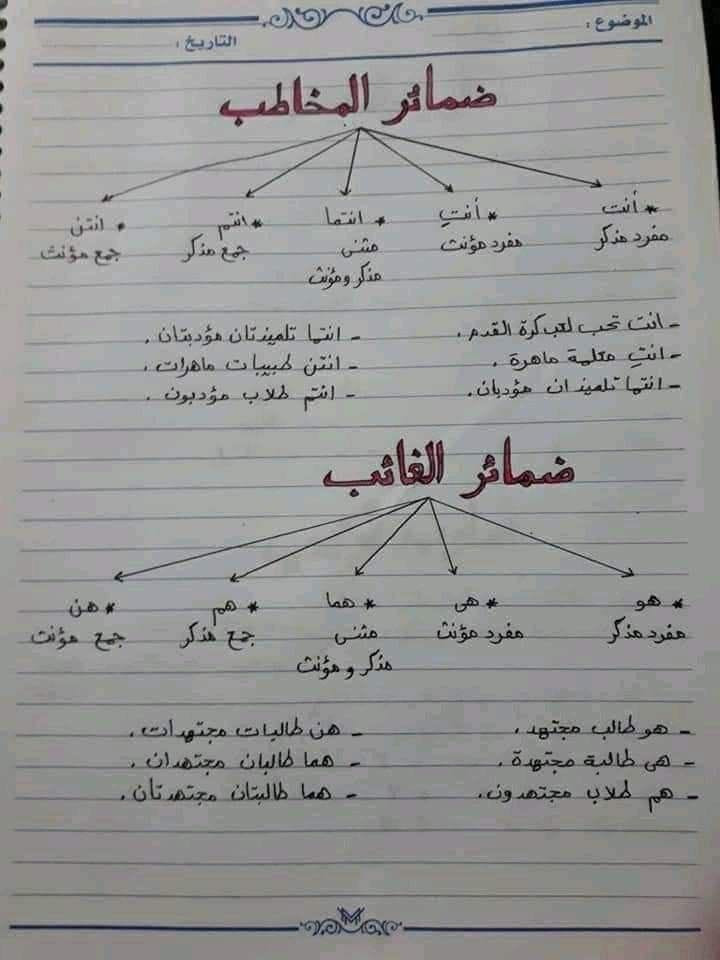 الموضوع :
التاريخ :
ضمائر المخاطب
* أنت * أنتِ * انتما * انتم * انتن
مفرد مذكر مفرد مؤنث مثنى جمع مذكر جمع مؤنث
مذكر ومؤنث
- انت تحب لعب كرة القدم. - انتما تلميذتان مؤدبتان.
- انتِ معلمة ماهرة. - انتن طبيبات ماهرات.
- انتما تلميذان مؤدبان. - انتم طلاب مؤدبون.
ضمائر الغائب
* هو * هى * هما * هم * هن
مفرد مذكر مفرد مؤنث مثنى جمع مذكر جمع مؤنث
مذكر و مؤنث
- هو طالب مجتهد. - هن طالبات مجتهدات.
- هى طالبة مجتهدة. - هما طالبان مجتهدان.
- هم طلاب مجتهدون. - هما طالبتان مجتهدتان.